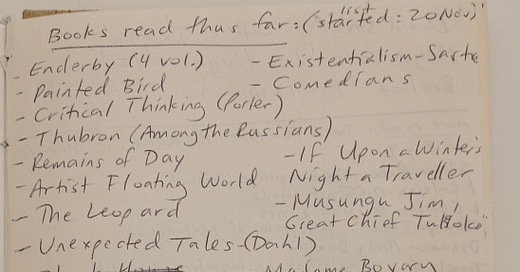 list
Books read thus far: (started: 20 Nov)
- Enderby (4 vol.)
- Painted Bird
- Critical Thinking (Porler)
- Thubron (Among the Russians)
- Remains of Day
- Artist Floating World
- The Leopard
- Unexpected Tales (Dahl)
- Existentialism - Sartre
- Comedians
- If Upon a Winter's
Night a Traveller
- Musungu Jim,
Great Chief
Madame Bovary